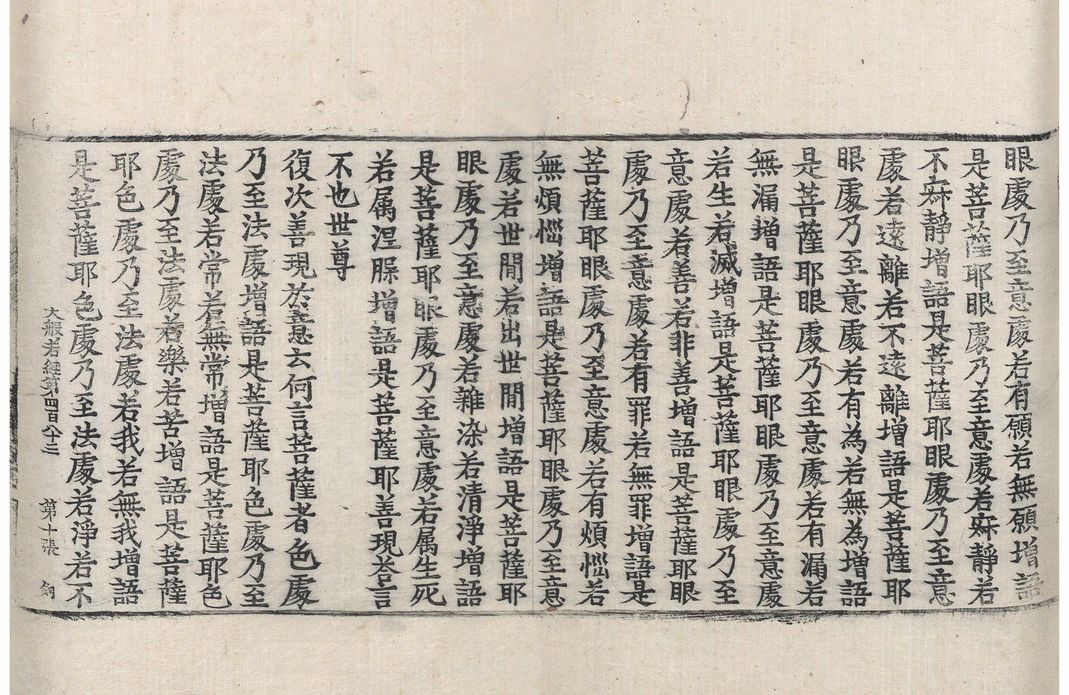 眼處乃至意處若有願若無願增語
是菩薩耶眼處乃至意處若𡧯靜若
不𡧯靜增語是菩薩耶眼處乃至意
處若遠離若不遠離增語是菩薩耶
眼處乃至意處若有為若無為增語
是菩薩耶眼處乃至意處若有漏若
無漏增語是菩薩耶眼處乃至意處
若生若滅增語是菩薩耶眼處乃至
意處若善若非善增語是菩薩耶眼
處乃至意處若有罪若無罪增語是
菩薩耶眼處乃至意處若有煩惱若
無煩惱增語是菩薩耶眼處乃至意
處若世間若出世間增語是菩薩耶
眼處乃至意處若雜染若清淨增語
是菩薩耶眼處乃至意處若属生死
若属涅槃增語是菩薩耶善現荅言
不也世尊
復次善現於意云何言菩薩者色處
乃至法處增語是菩薩耶色處乃至
法處若常若無常增語是菩薩耶色
處乃至法處若樂若苦增語是菩薩
耶色處乃至法處若我若無我增語
是菩薩耶色處乃至法處若淨若不
大般若經第四百八十三 第十張